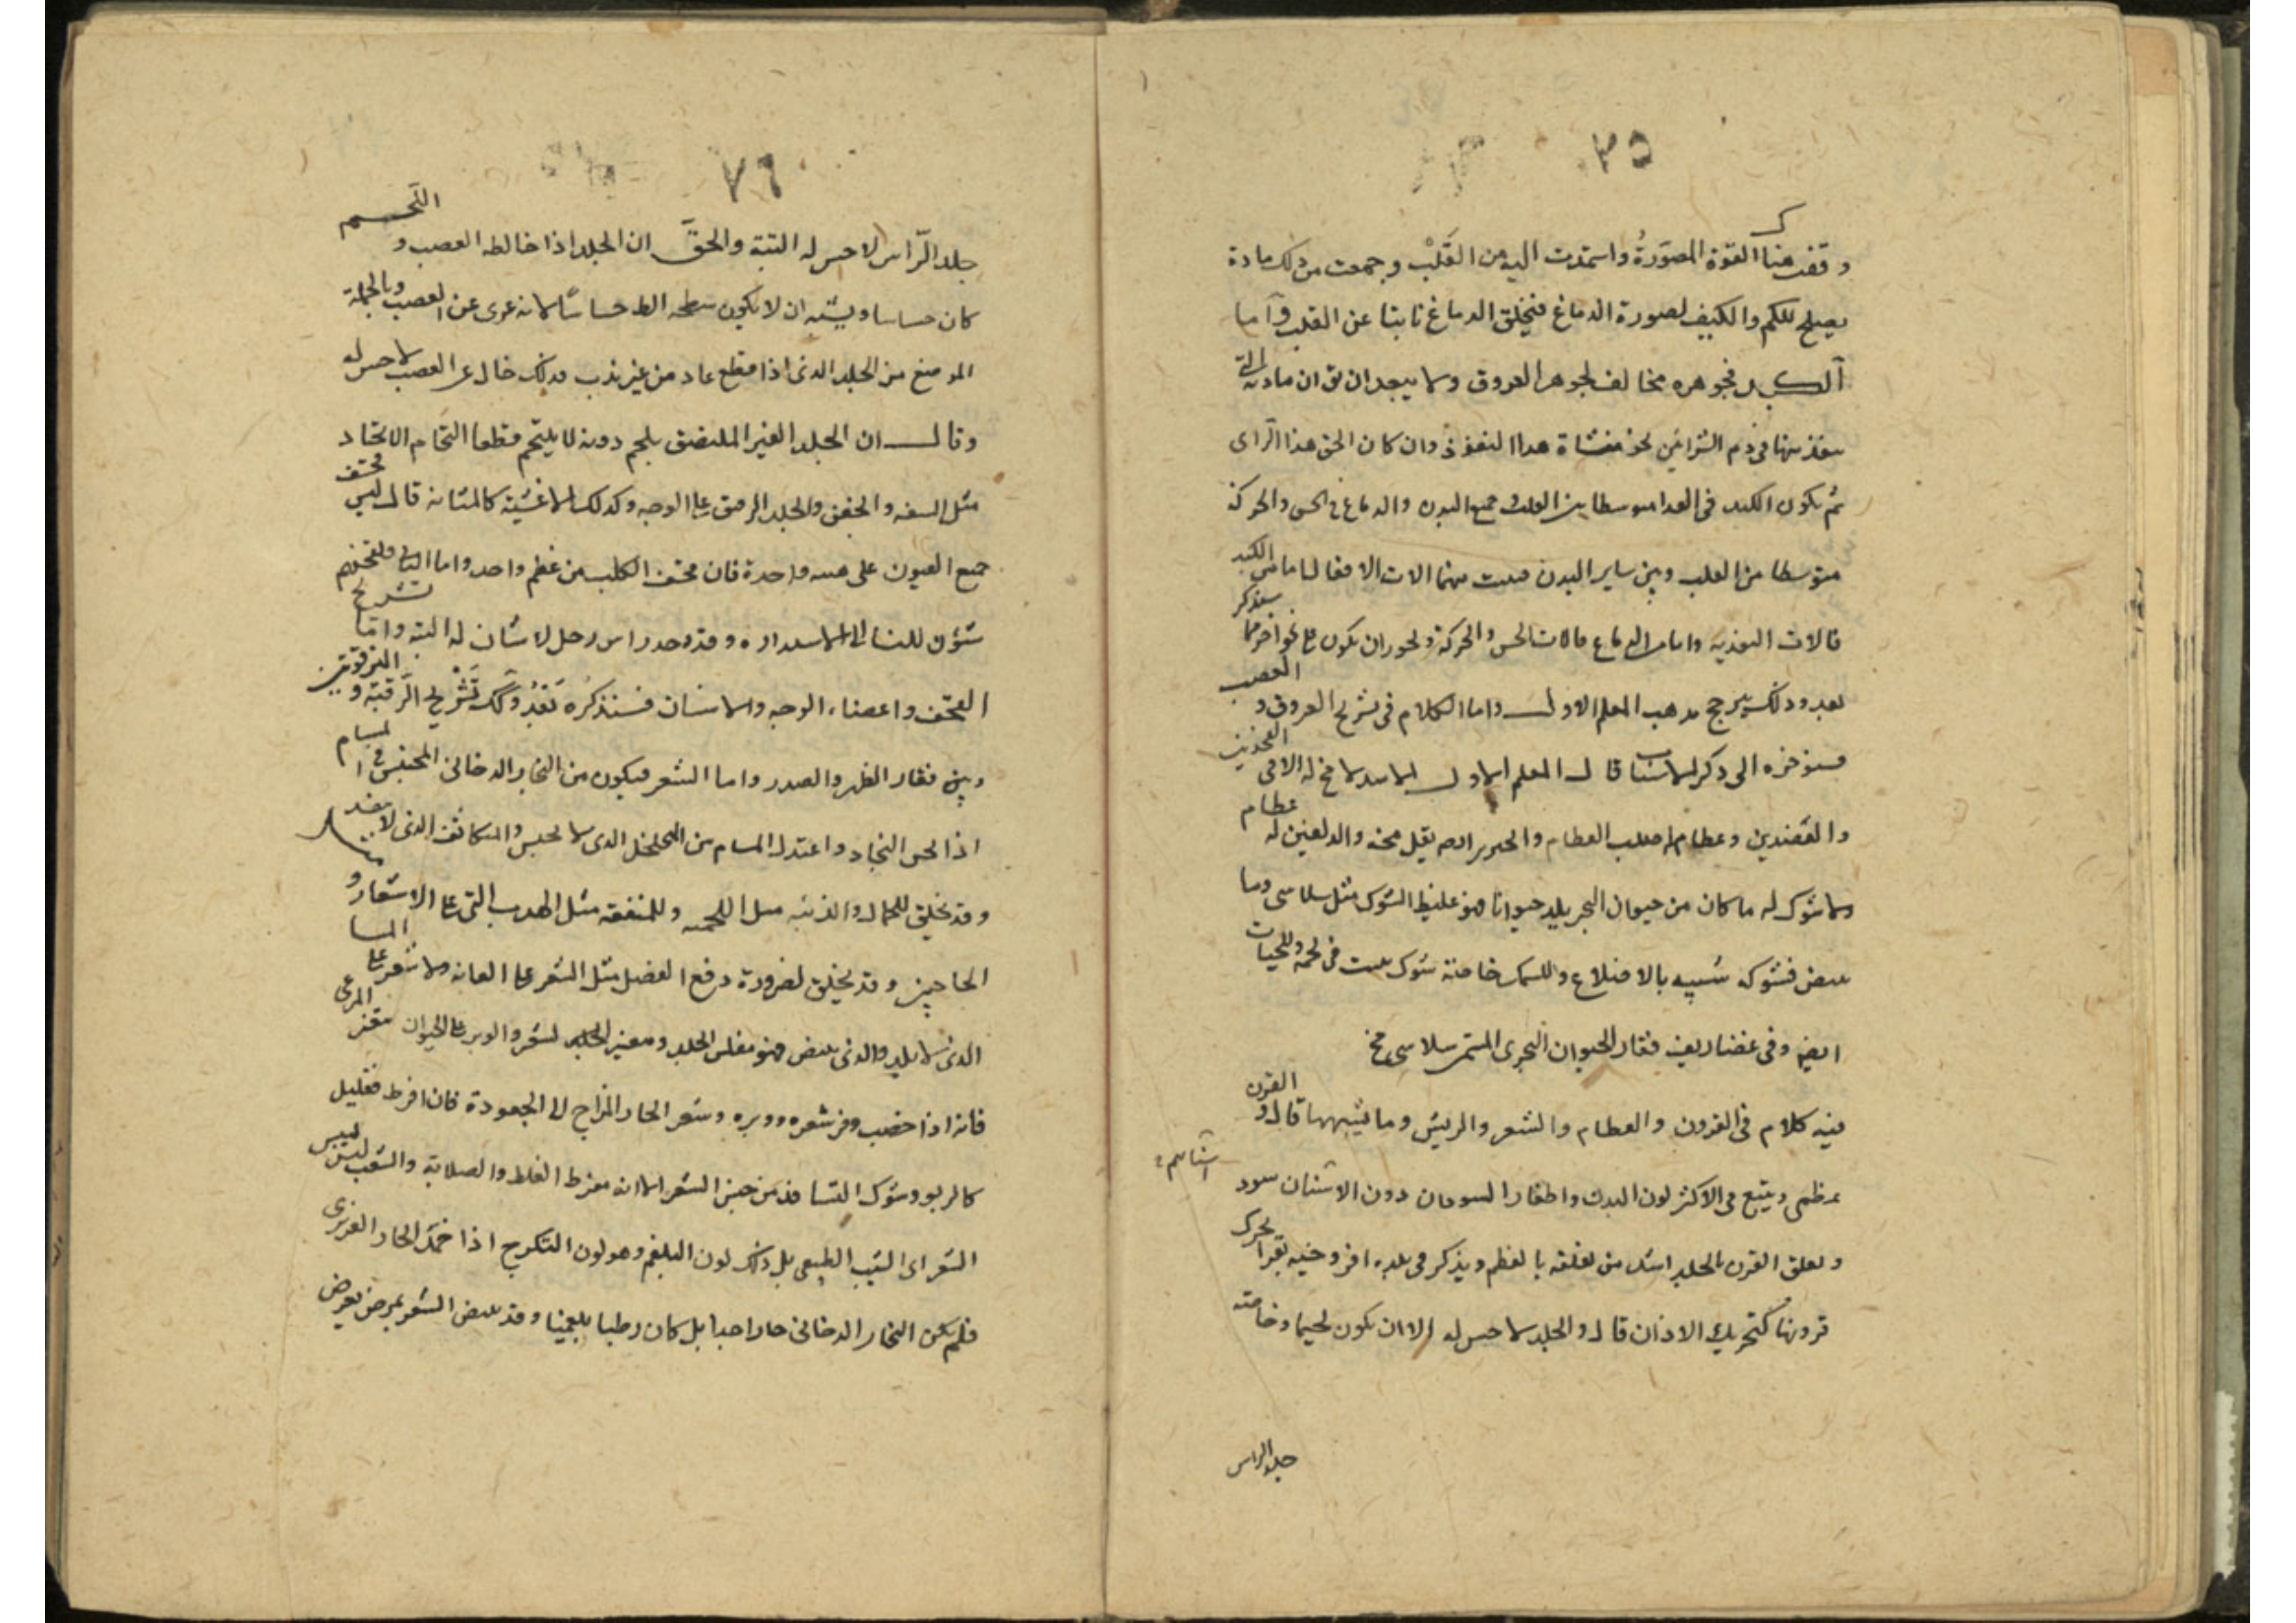 ٣٥
وقفت هناك القوة المصورة واستمدت اليه من القلب وجمعت من ذلك مادة
يصلح للكم والكيف لصورة الدماغ فيخلق الدماغ نابتا عن القلب واما
الكبد فجوهره مخالف لجوهر العروق ولا يبعد ان يق ان مادته التى
ينفذ منها فى دم الشرائين لحو منشاة هدا النفوذ وان كان الحق هذا الراى
ثم يكون الكبد فى الغدا متوسطا بين القلب وجميع البدن والدماغ فى الحس والحركة
متوسطا من القلب وبين ساير البدن الات الافعال اما من الكبد
فالات التغذيه واما من الدماغ فالات الحس والحركة ولجوز ان يكون على نحو اخر مما سنذكر
بعد وذلك يرجح مدهب المعلم الاول واما الكلام فى تشريح العروق و العصب
فسنوخره الى ذكر الاسباب قال المعلم الاول الاسد لا مخ له الا فى الفخذين
والعضدين وعظامه اصلب العظام يقل مخه والدلفين له عظام
ولا شوك له ما كان من حيوان البحر يلد حيوانا فهو غليظ الشوك مثل سلاسى وما
يبيض فشوكه شبيه بالاضلاع وللسمك خاصة شوك فى لحمه وللحيات
ايضا وفى غضاريف فقار الحيوان البحرى المسمى سلاسى مخ
فيه كلام فى القرون والعظام والشعر والريش وما يشبهها قال و القرن
عظمى ويتبع فى الاكثر لون البدن واظفار السودان سود دون الاسنان
اسنانهم
وتعلق القرن بالجلد اشد من تعلقه بالعظم ويذكر فى بلده افروخيه بقرا تحرك
قرونها كتحريك الاذان قال والجلد لا حس له الا ان يكون لحيما وخاصة
جلد الراس
٣٦
جلد الراس لا حس له البتة والحق ان الجلد اذا خالطه العصب و اللحم
كان حساسا ويشبه ان لا يكون سطحه الظ حساسا لانه عرى عن العصب وبالجملة
الموضع من الجلد الذى اذا قطع عاد من غير ندب فذلك خال عن العصب لا حس له
وقال ان الجلد الغير الملتصق بلحم دونه لا يلتحم قطعا التحام الاتحاد
مثل الشفه والجفن والجلد الرقيق على الوجه وكذلك الاغشية كالمثانه قال ليس قحف
جميع العيون على هيئه واحدة فان قحف الكلب من عظم واحد واما الناس فلقحفهم
شئون للنسا الى الاستداره وقد وجد راس رجل لا شان له البته واما تشريح
القحف واعضاء الوجه والاسنان فسنذكره بعد وكذلك تشريح الرقبة و الترقوتين
وبين فقار الظهر والصدر واما الشعر فيكون من البخار الدخانى المحتبس فى المسام
اذا لحس البخار واعتدل المسام بين المتخلخل الذى لا يحبس والمتكاثف الذى لا ينفذ
وقد يخلق للجمال والزينه مثل اللحيه وللمنفعة مثل الهدب التى على الاشفار و
الحاجبين وقد يخلق لضرورة دفع الفضل مثل الشعر على العانه ولا شعر على النسا
الذى لا يلد والذى يبيض فهو مفلس الجلد ومغير الجلد لشعر والوبر على الحيوان المرعى
فانه اذا خصب وفر شعره ووبره وشعر الحار المزاج الى الجعودة فان افرط فقليل
كالربو وشوك القنافذ من جنس الشعر الا انه مفرط الغلظ والصلابة والشيب ليس ليبس
الشعر اى الشيب الطبيعى بل ذلك لون البلغم وهو لون التكرج اذا خمد الحار الغريزى
فلم يكن البخار الدخانى حارا جدا بل كان رطبا بلغميا وقد يبيض الشعر بمرض يعرض